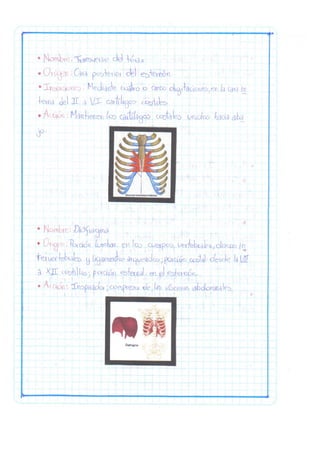 • Nombre: Transverso del tórax
• Origen: Cara posterior del esternón
• Inserciones: Mediante cuatro o cinco digitaciones, en la cara in
terna del II a VI cartílagos costales
• Acción: Mantienen los cartílagos costales hacia aba
jo.
• Nombre: Diafragma
• Origen: Porción lumbar en los cuerpos vertebrales, discos in
tervertebrales y ligamentos arqueados; porción costal desde la VII
a XII costillas; porción esternal en el esternón.
• Acción: Inspirador, compresor de las vísceras abdominales.
Diafragma